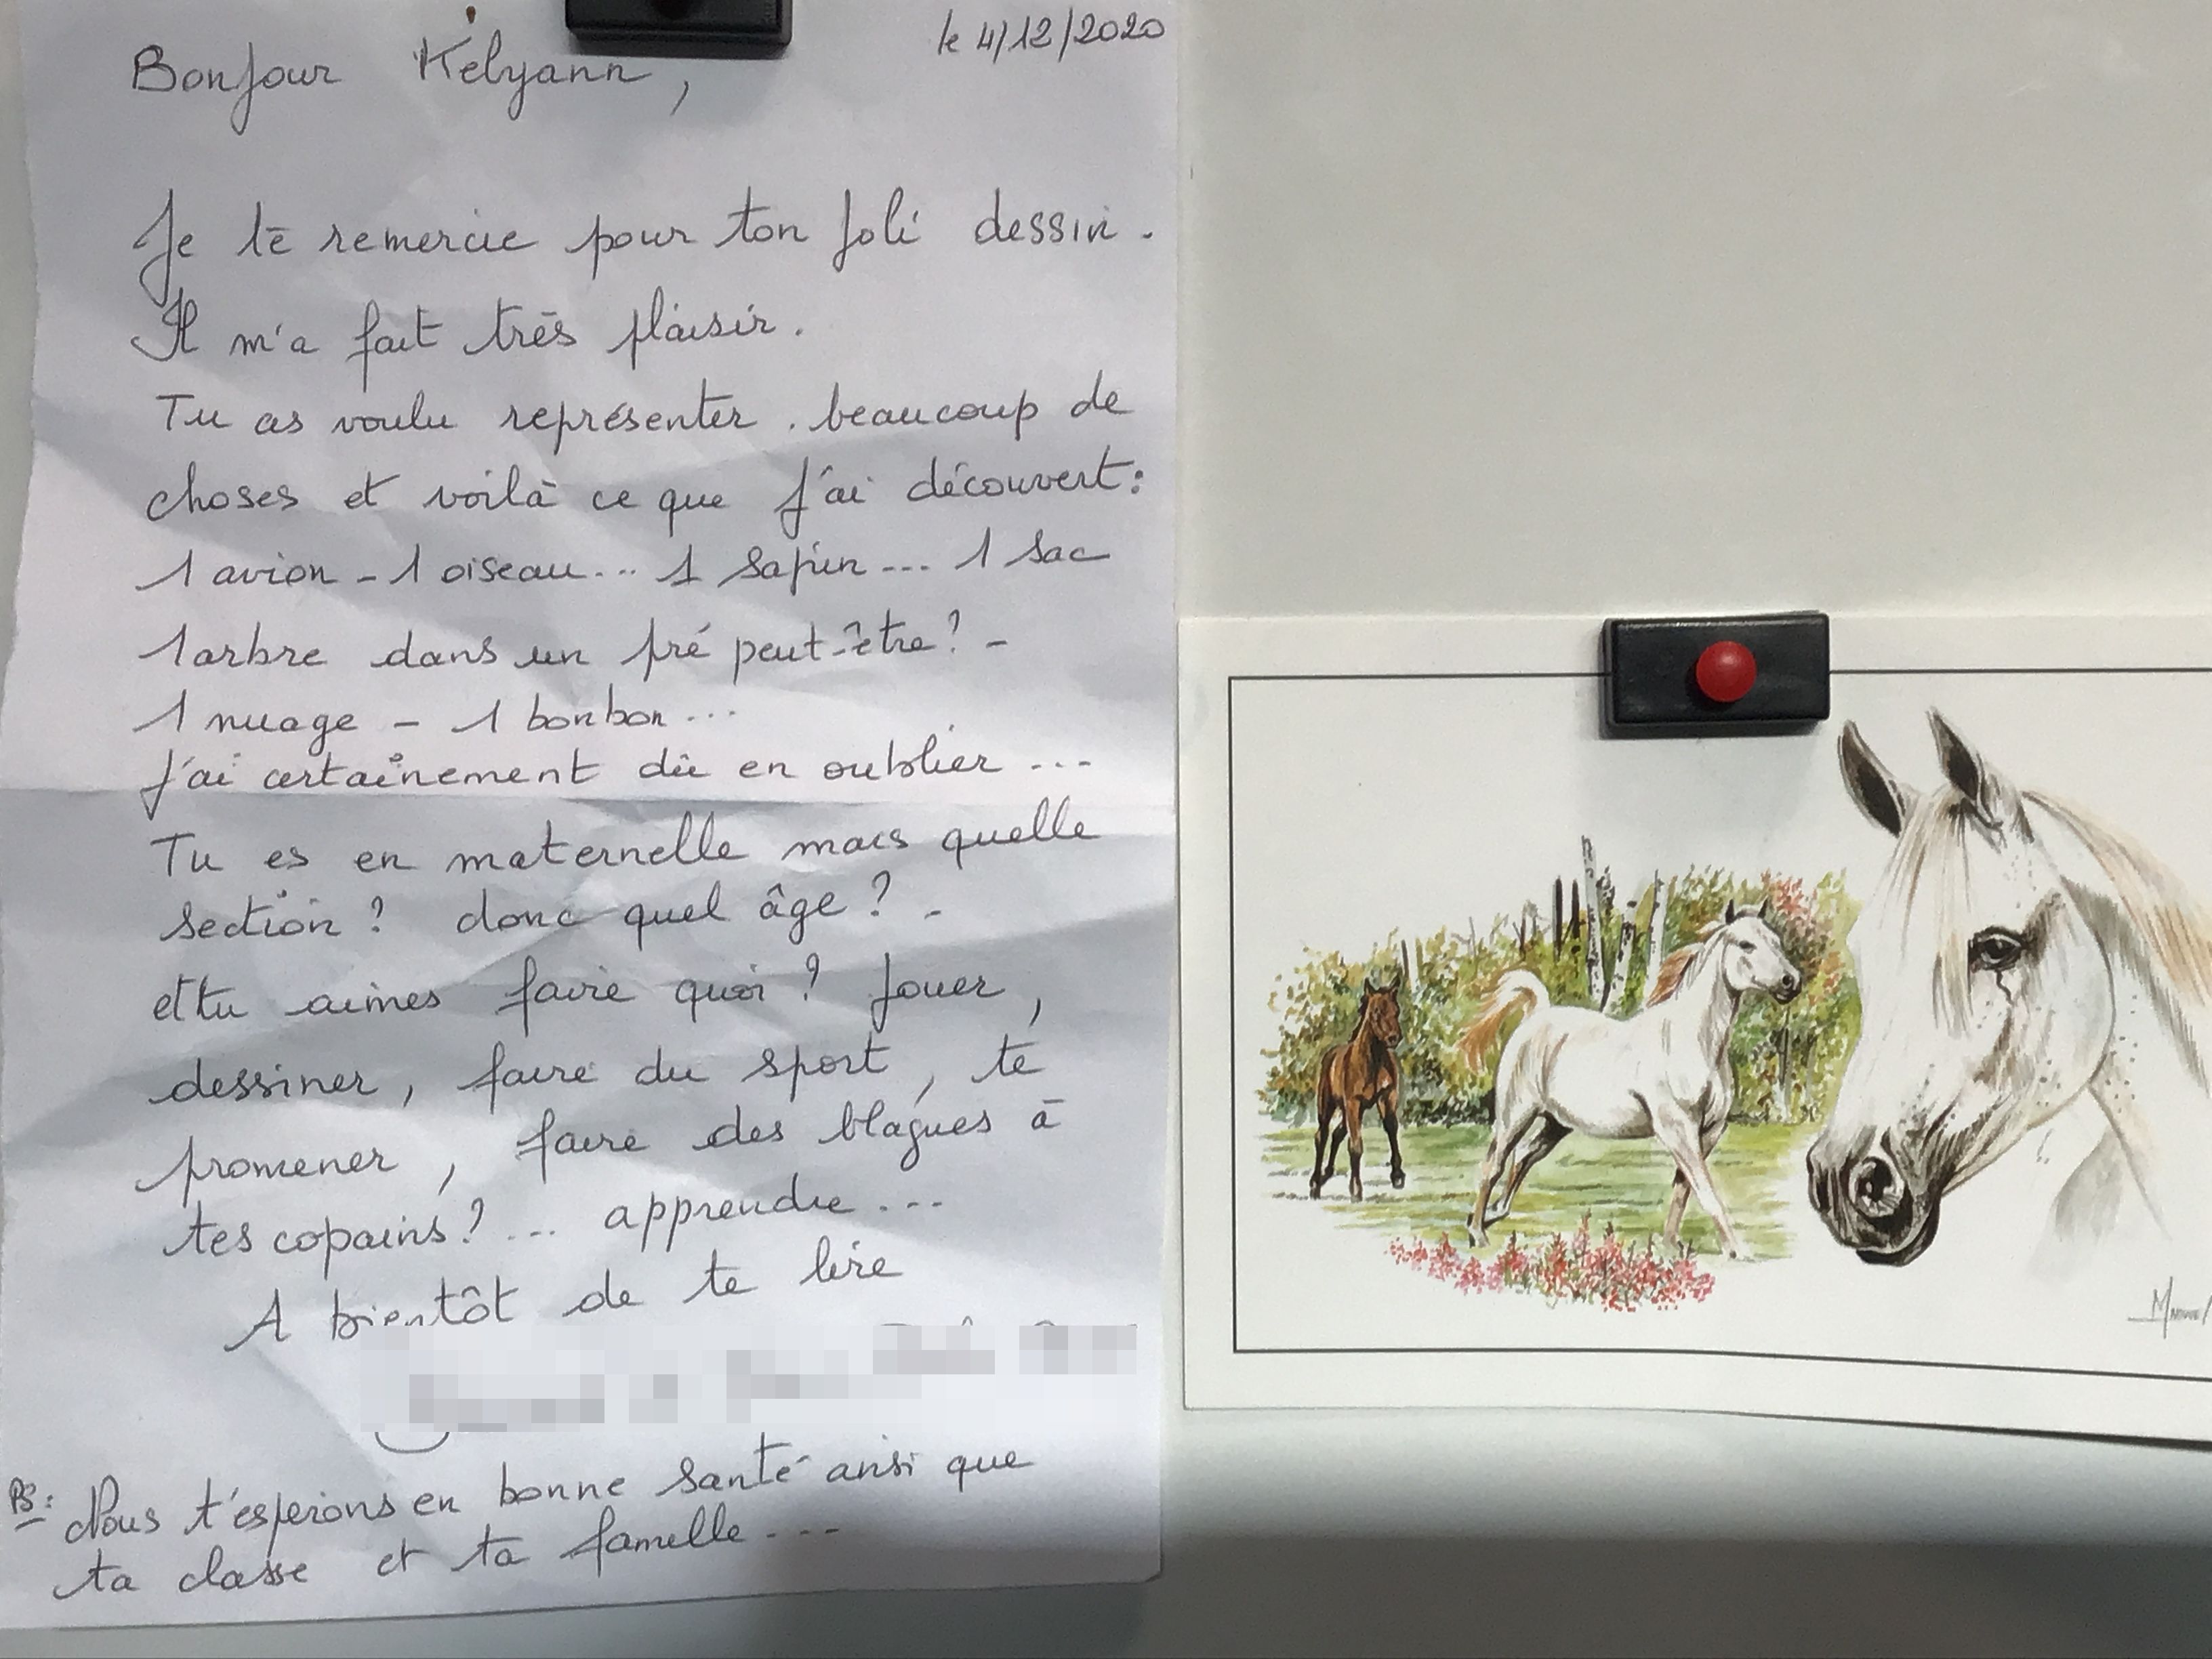 le 4/12/2020
Bonjour Kélyann,
Je te remercie pour ton joli dessin.
Il m'a fait très plaisir.
Tu as voulu représenter. beaucoup de
choses et voilà ce que j'ai découvert:
1 avion - 1 oiseau... 1 sapin... 1 sac
1 arbre dans un pré peut-être? -
1 nuage - 1 bonbon...
J'ai certainement dû en oublier...
Tu es en maternelle mais quelle
section? donc quel âge? -
et tu aimes faire quoi? Jouer,
dessiner, faire du sport, te
promener, faire des blagues à
tes copains?... apprendre...
A bientôt de te lire
PS: Nous t'espérons en bonne santé ainsi que
ta classe et ta famille...